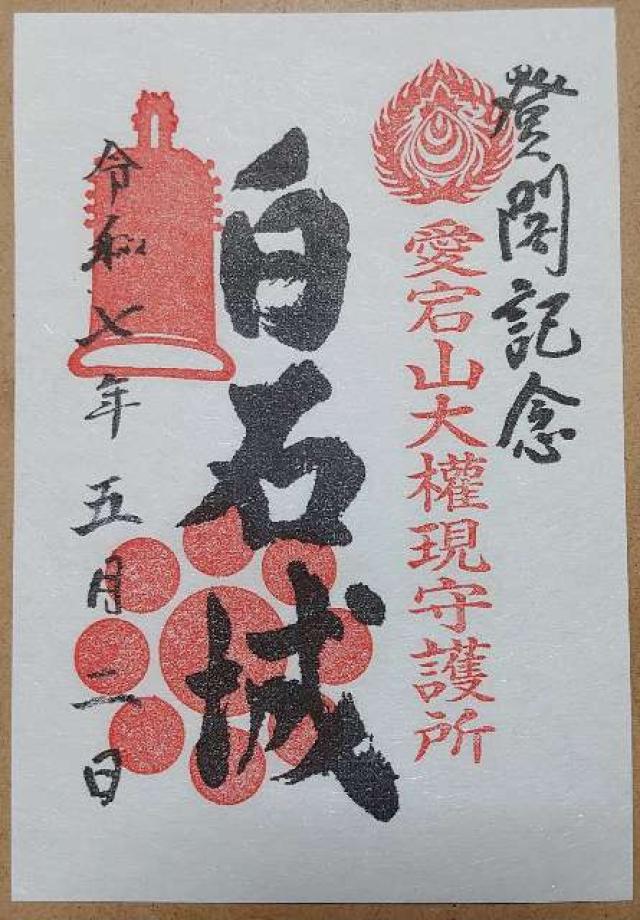 登閣記念
愛宕山大權現守護所
白石城
令和七年五月二日